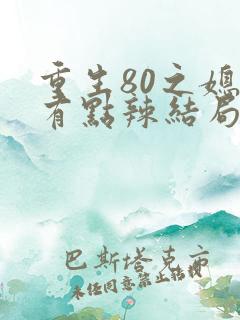 重生80之媳
有點辣結局
巴斯塔克亦
未经同意禁止转载